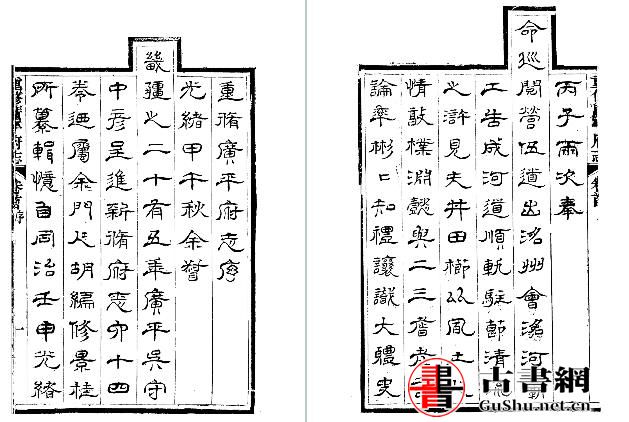 重脩廣平府志序
光緒甲午秋余督
畿疆之二十有五年廣平吳守
中彥呈進新脩府志六十四
卷迺屬余門人胡編修景桂
所纂輯憶自同治壬申光緒
府志
卷首序
一
丙子兩次奉
命巡閱營伍道出洺州會滏河新
工告成河道順軌駐節清
之滸見夫井田櫛比風土
情敦樸淵懿與二三耆老
論率彬彬知禮讓識大體史
卷首
書
古書網
GuShu.net.cn